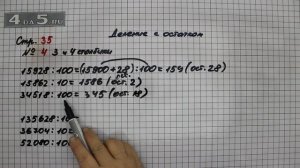 4DA5.RU
Деление с остатком
Стр. 35
№ 4 3 и 4 столбики
15928:100=(15900+28):100=159(ост.28)
15862:10=1586(ост.2)
34518:100=345(ост.18)
135628:10
36704:10
52080:10